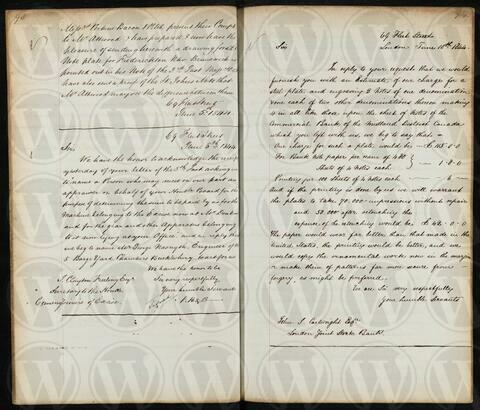 Messrs Perkins Bacon & Petch present their Compts
to Mr Attwood & have prepared & now have the
pleasure of sending herewith a drawing for a £
Note plate for Fredericton New Brunswick as
pointed out in his Note of the 3rd Inst They
have also sent a proof of the St John's Note that
Mr Attwood may see the difference in them
69 Fleet Street
June 5th 1844
69 Fleet Street
June 5th 1844
Sir
We have the honor to acknowledge the receipt
yesterday of your letter of the 3rd Inst asking us
to name a Person who may act on our part as
appraiser on behalf of your Honble Board for the
purpose of determining the sum to be paid by us for the
Machine belonging to the Excise now at Mr
and for the gas and other Apparatus belonging
to us now lying at your Office and in reply thereto
we beg to name Mr George Engineer of No
5 Barge Yard Chambers Bucklersbury
We have the honor to be
Sir very respectfully
Your humble Servants
P. B & P
J. Clayton Freeling Esqr
Secretary to the Honble
Commissioners of Excise
69 Fleet Street
London June 10th 1844
Sir
In reply to your request that we would
furnish you with an Estimate of our charge for a
steel plate and engraving 2 Notes of one denomination
and one each of two other denominations thereon making
4 in all, like those upon the sheet of Notes of the
Commercial Bank of the Midland District Canada
which you left with us, we beg to say that
Our charge for such a plate would be £115.0.0
For Bank Note paper per ream of 480
Sheets of 4 Notes each 1.8.0
Printing per 100 Sheets of 4 Notes each
And if the printing is done by us we will warrant
the plates to take 70,000 impressions without repair
and 30,000 after retouching the
expense of the retouching would be £42.0.0
The paper would wear far better than that made in the
United States, the printing would be better, and we
would copy the ornamental works now in the margin
or make them of patterns far more secure from
forgery, as might be preferred.
We are Sir very respectfully
Your humble Servants
John S. Cartwright Esqr
London Joint Stock Bank